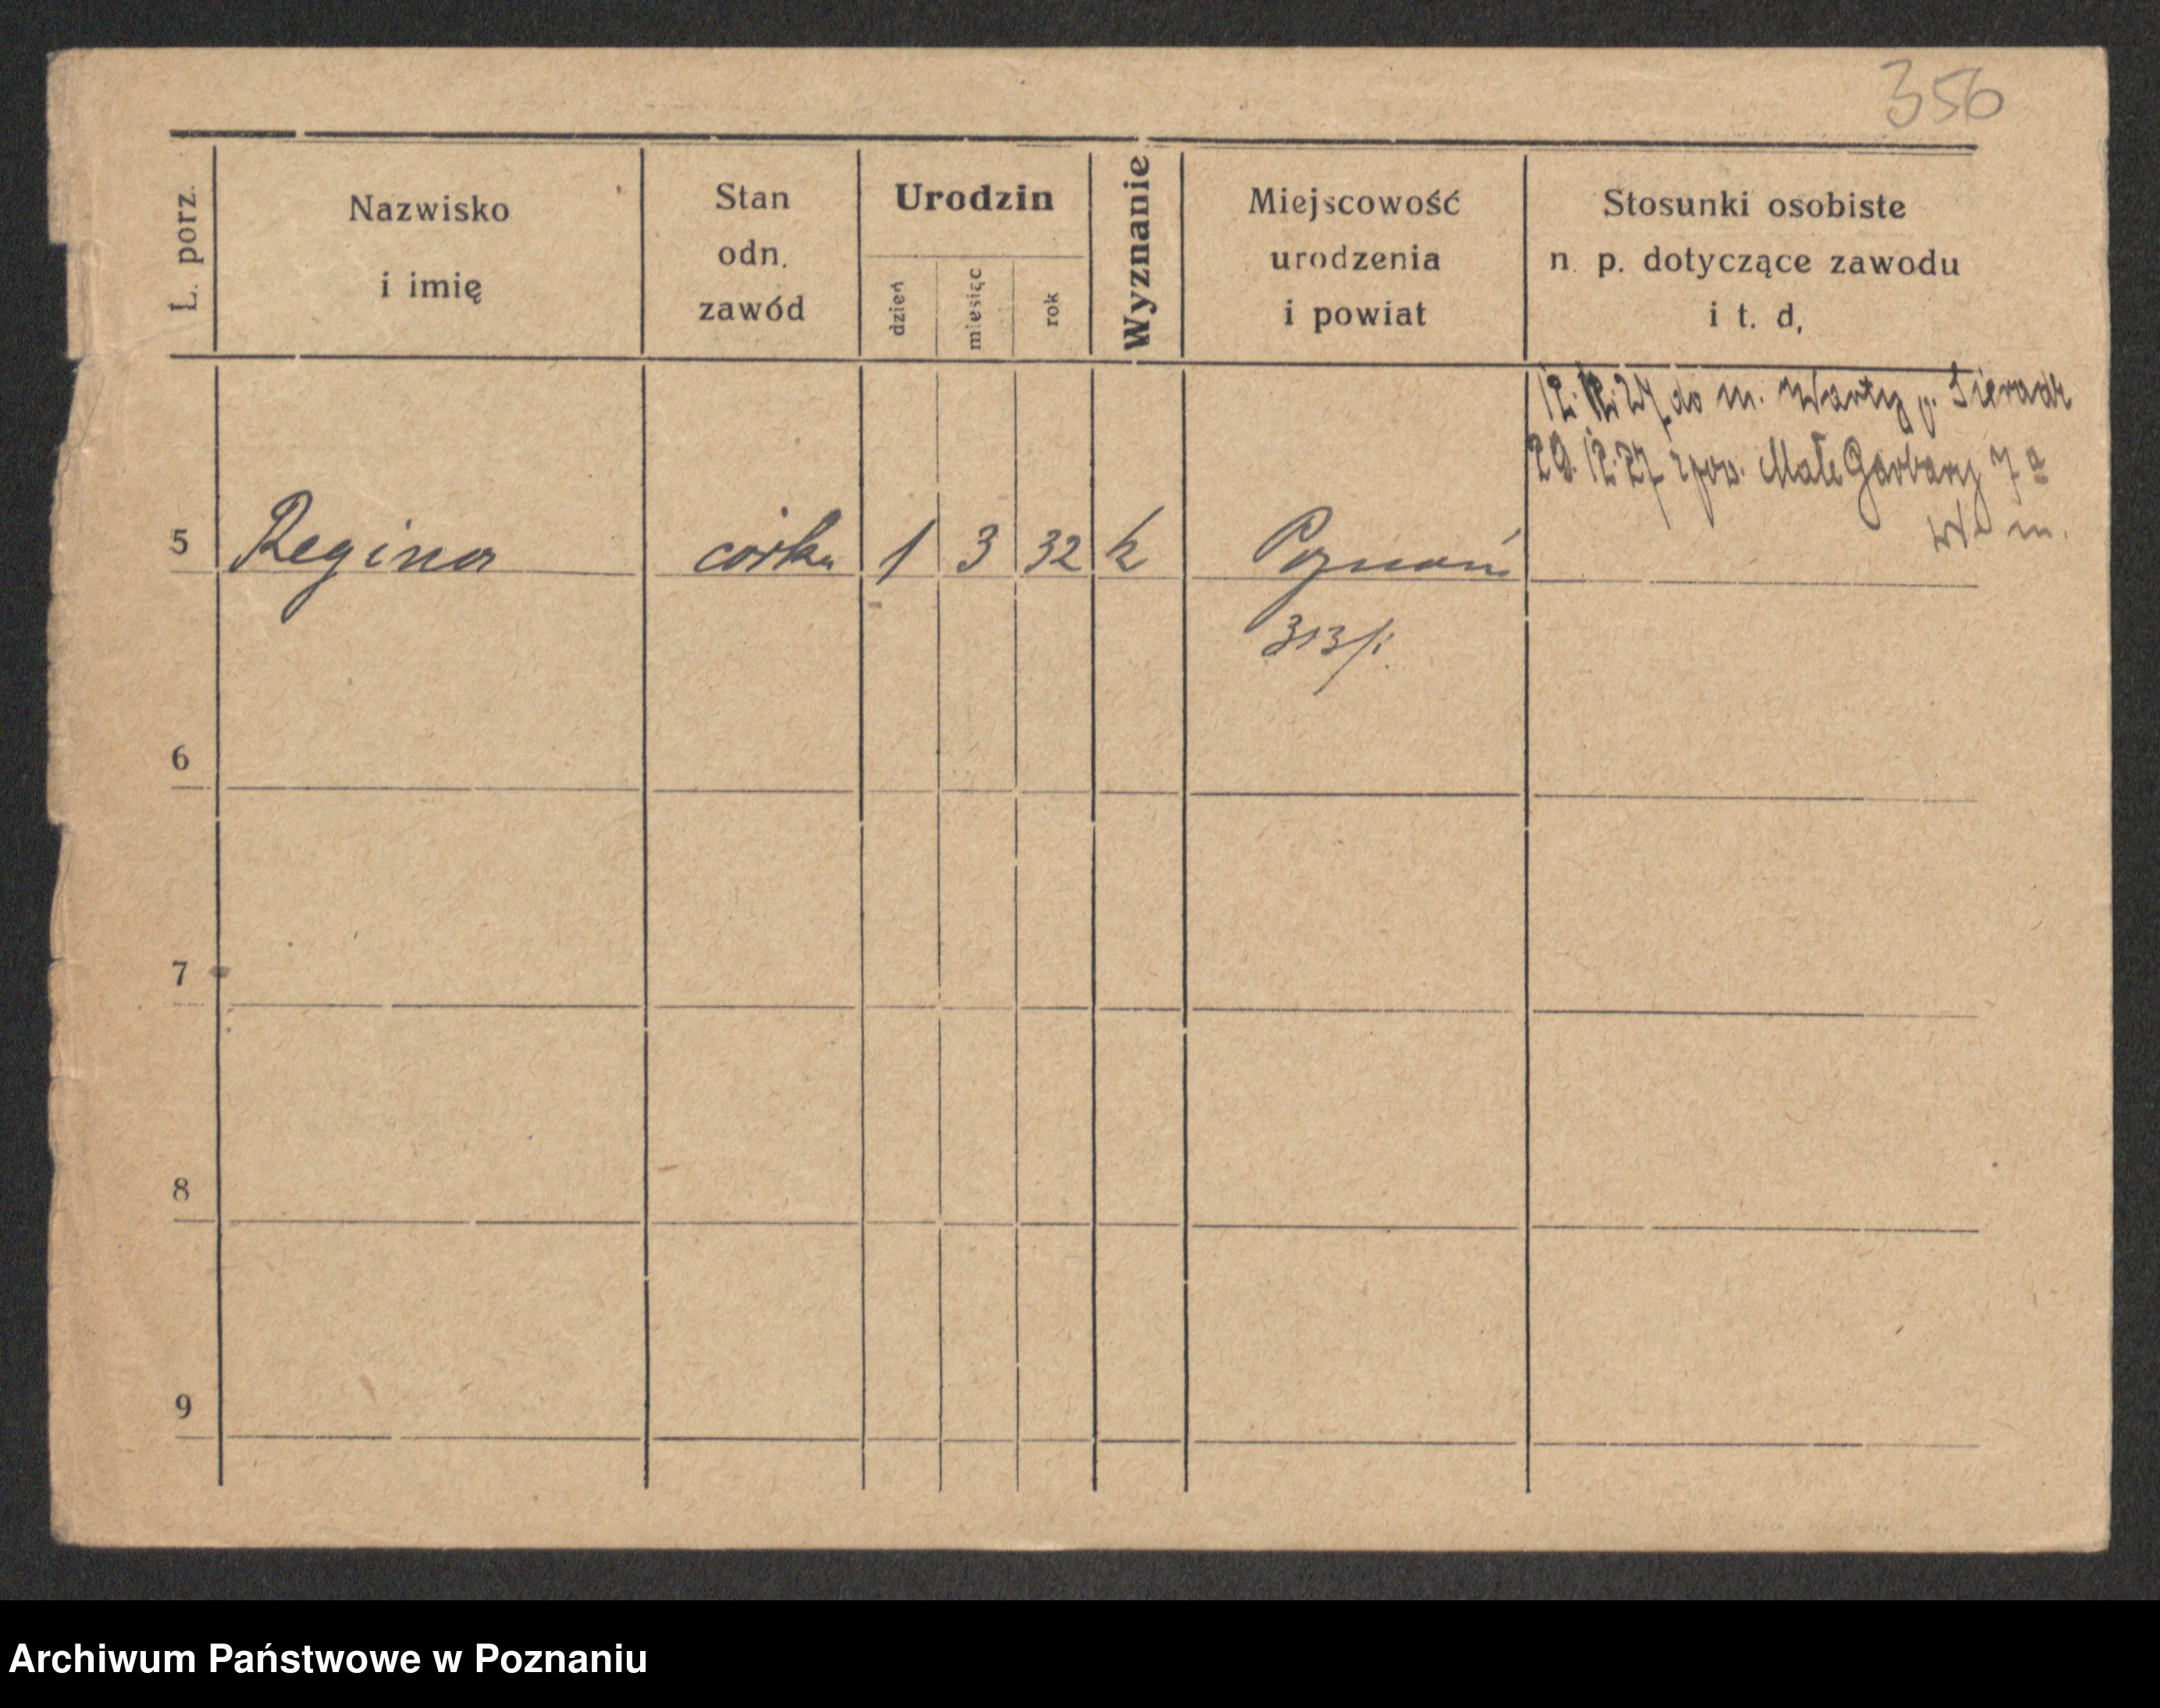 356
L. porz.
Nazwisko
i imię
Stan
odn.
zawód
Urodzin
dzień
miesięc
rok
Wyznanie
Miejscowość
urodzenia
i powiat
Stosunki osobiste
n. p. dotyczące zawodu
i t. d,
12. 12. 27 do m. Warty p. Sieradz
29. 12. 27 zpow. Małe Garbary 7a
W. m.
5 Regina córka 1 3 32 k Poznań
313/
6
7
8
9
Archiwum Państwowe w Poznaniu